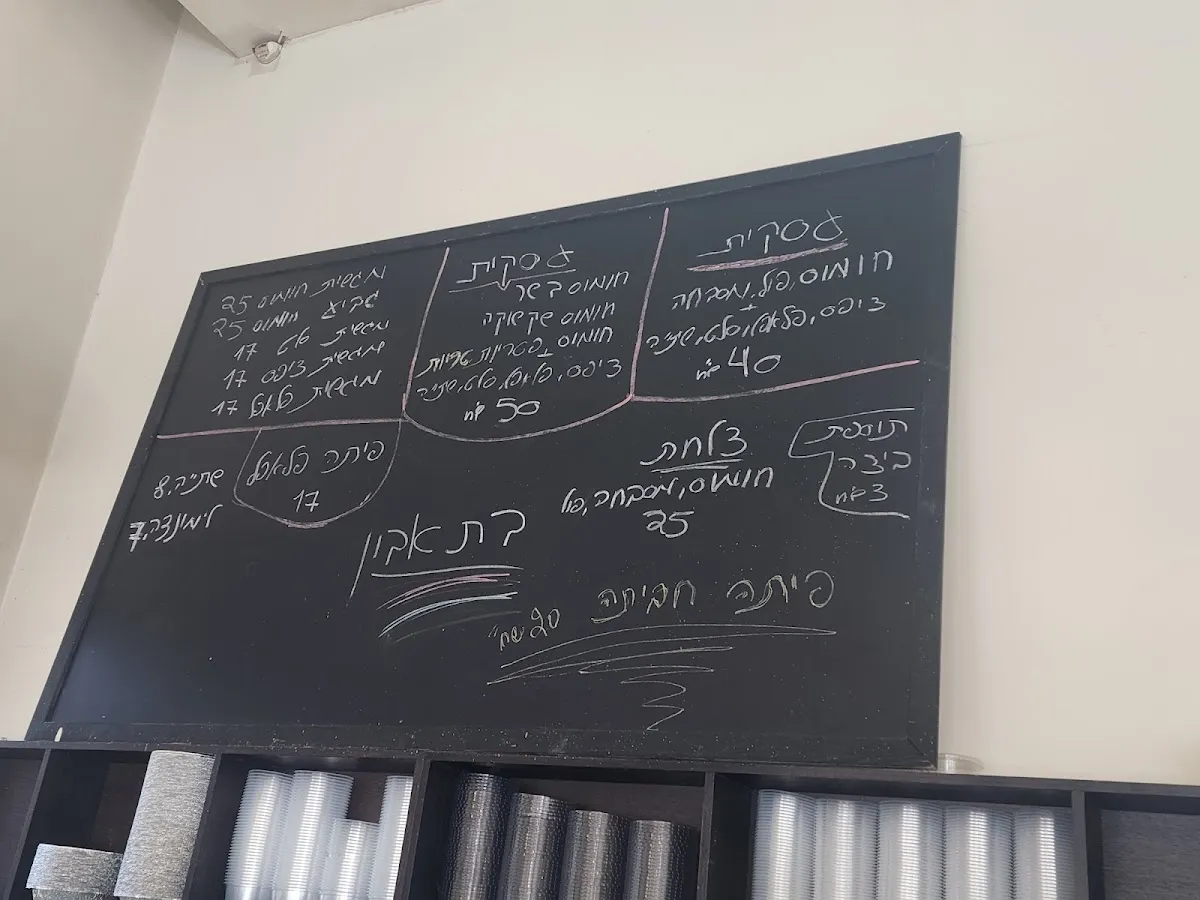 עסקית
חומוס, פול, מסבחה
+
ציפס, פלאפל, סלט, שתייה
40 ש"ח
עסקית
חומוס בשר
חומוס שקשוקה
חומוס פטריות טריות
+
ציפס, פלאפל, סלט, שתייה
50 ש"ח
מגשית חומוס 25
גביע חומוס 25
מגשית סלט 17
מגשית ציפס 17
מגשית פלאפל 17
תוספת
ביצה
3 ש"ח
צלחת
חומוס, מסבחה, פול
35
פיתה פלאפל
17
שתייה 8
לימונדה 7
בתאבון
פיתה חביתה 20 ש"ח